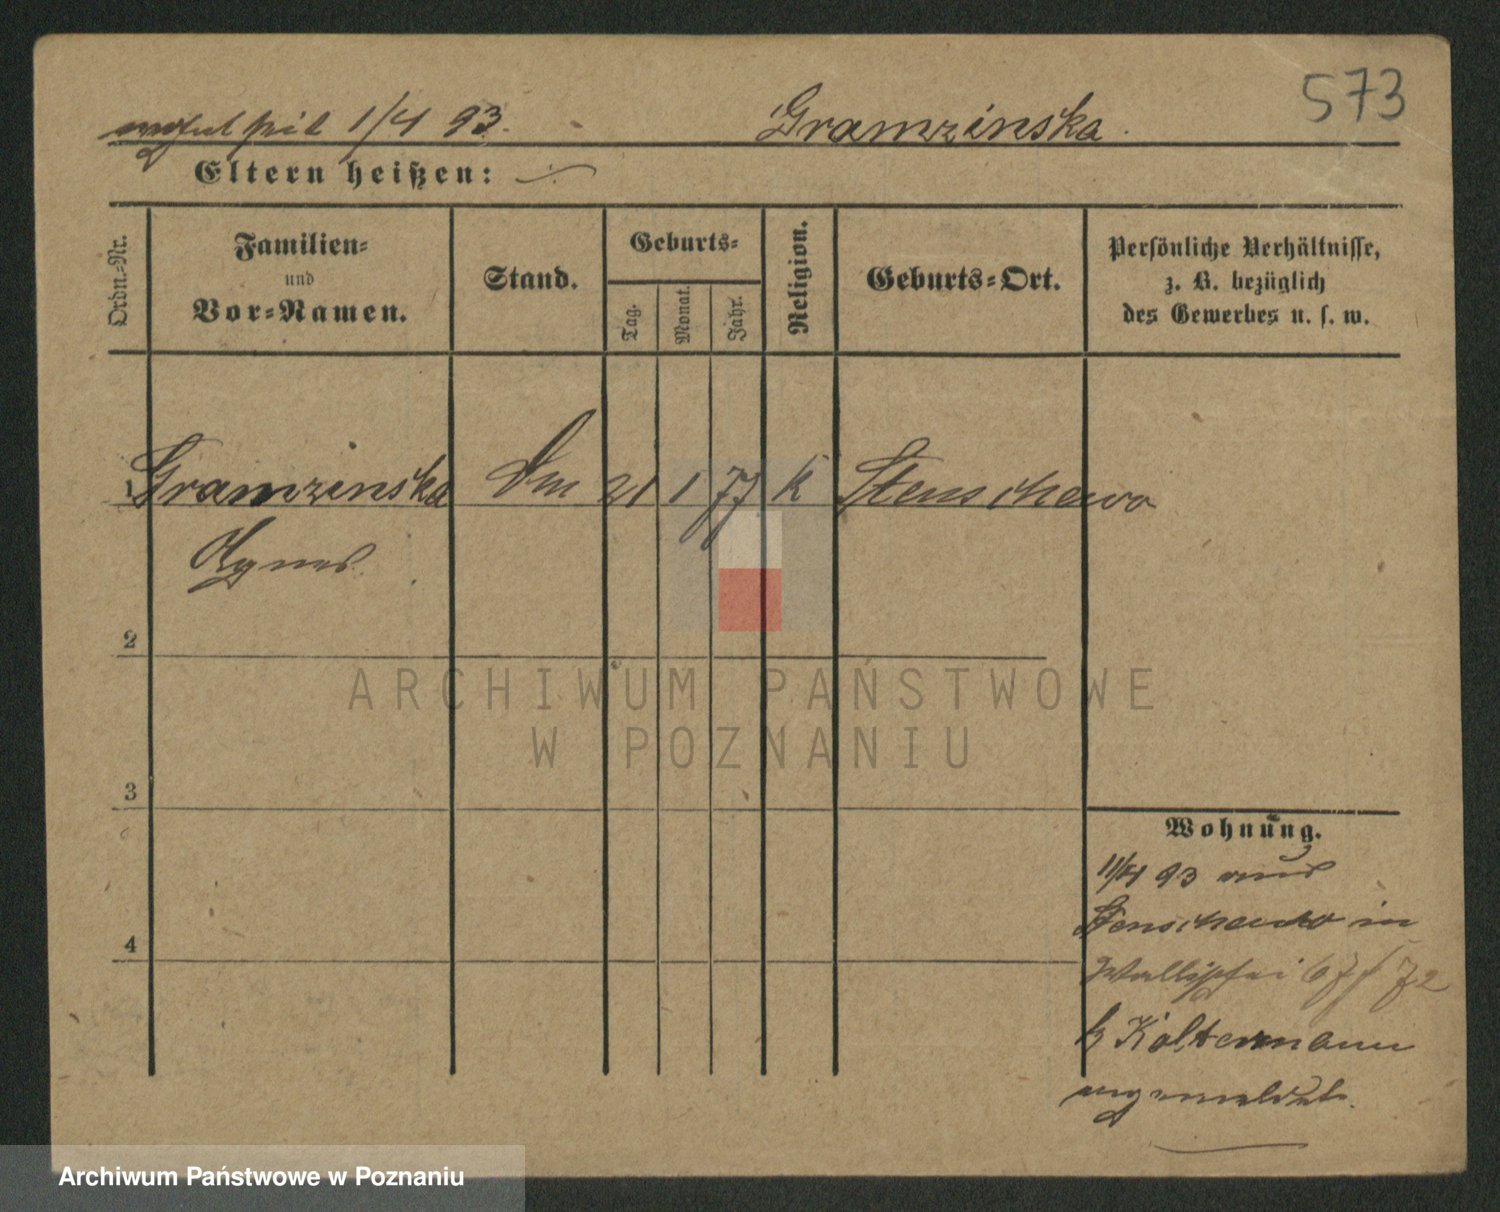 573
seit 1/4 93. Gramzinska.
Eltern heißen:
Ordn.-Nr.
Familien-
und
Vor-Namen.
Stand.
Geburts-
Tag.
Monat.
Jahr.
Religion.
Geburts-Ort.
Persönliche Verhältnisse,
z. B. bezüglich
des Gewerbes u. s. w.
1 Gramzinska 21 1 77 k Stenschewo
Agnes
2
3
4
Wohnung.
11/4 93 aus
Stenschewo in
Wallischei 67/72
b Koltermann
angemeldet.
ARCHIWUM PAŃSTWOWE
W POZNANIU
Archiwum Państwowe w Poznaniu